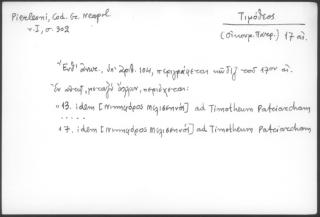 Pierleoni, Cod. Gr. Neapol
v. I, σ. 302
Τιμόθεος
(Οἰκουμ. Πατρ.) 17 αἰ.
Ἐνθ' ἀνωτ., ὑπ' ἀριθ. 104, περιγράφεται κῶδιξ τοῦ 17ου αἰ.
Ἐν αὐτῷ, μεταξὺ ἄλλων, περιέχεται:
13. idem [Νικηφόρος Μελισσηνός] ad Timotheum Patriarcham
.....
17. idem [Νικηφόρος Μελισσηνός] ad Timotheum Patriarcham